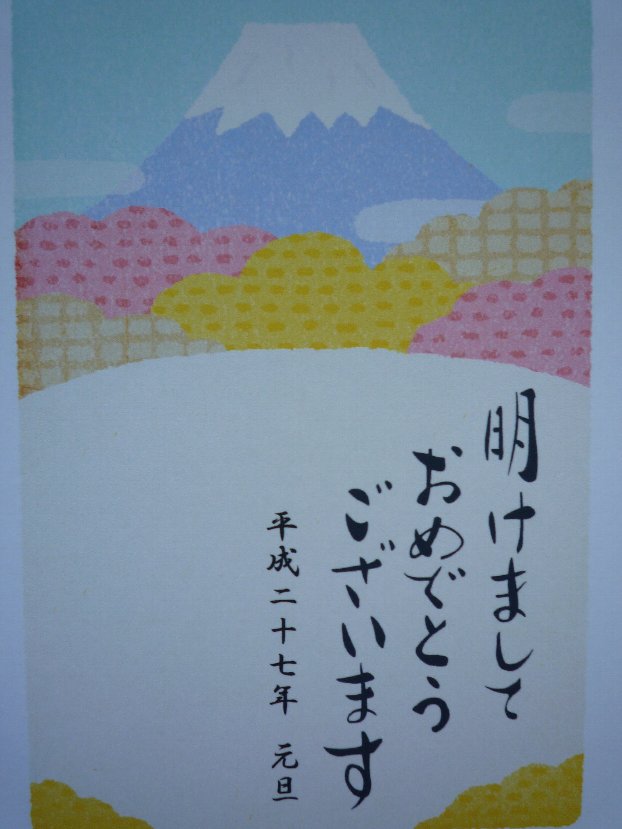 明けまして
おめでとう
ございます
平成二十七年 元旦